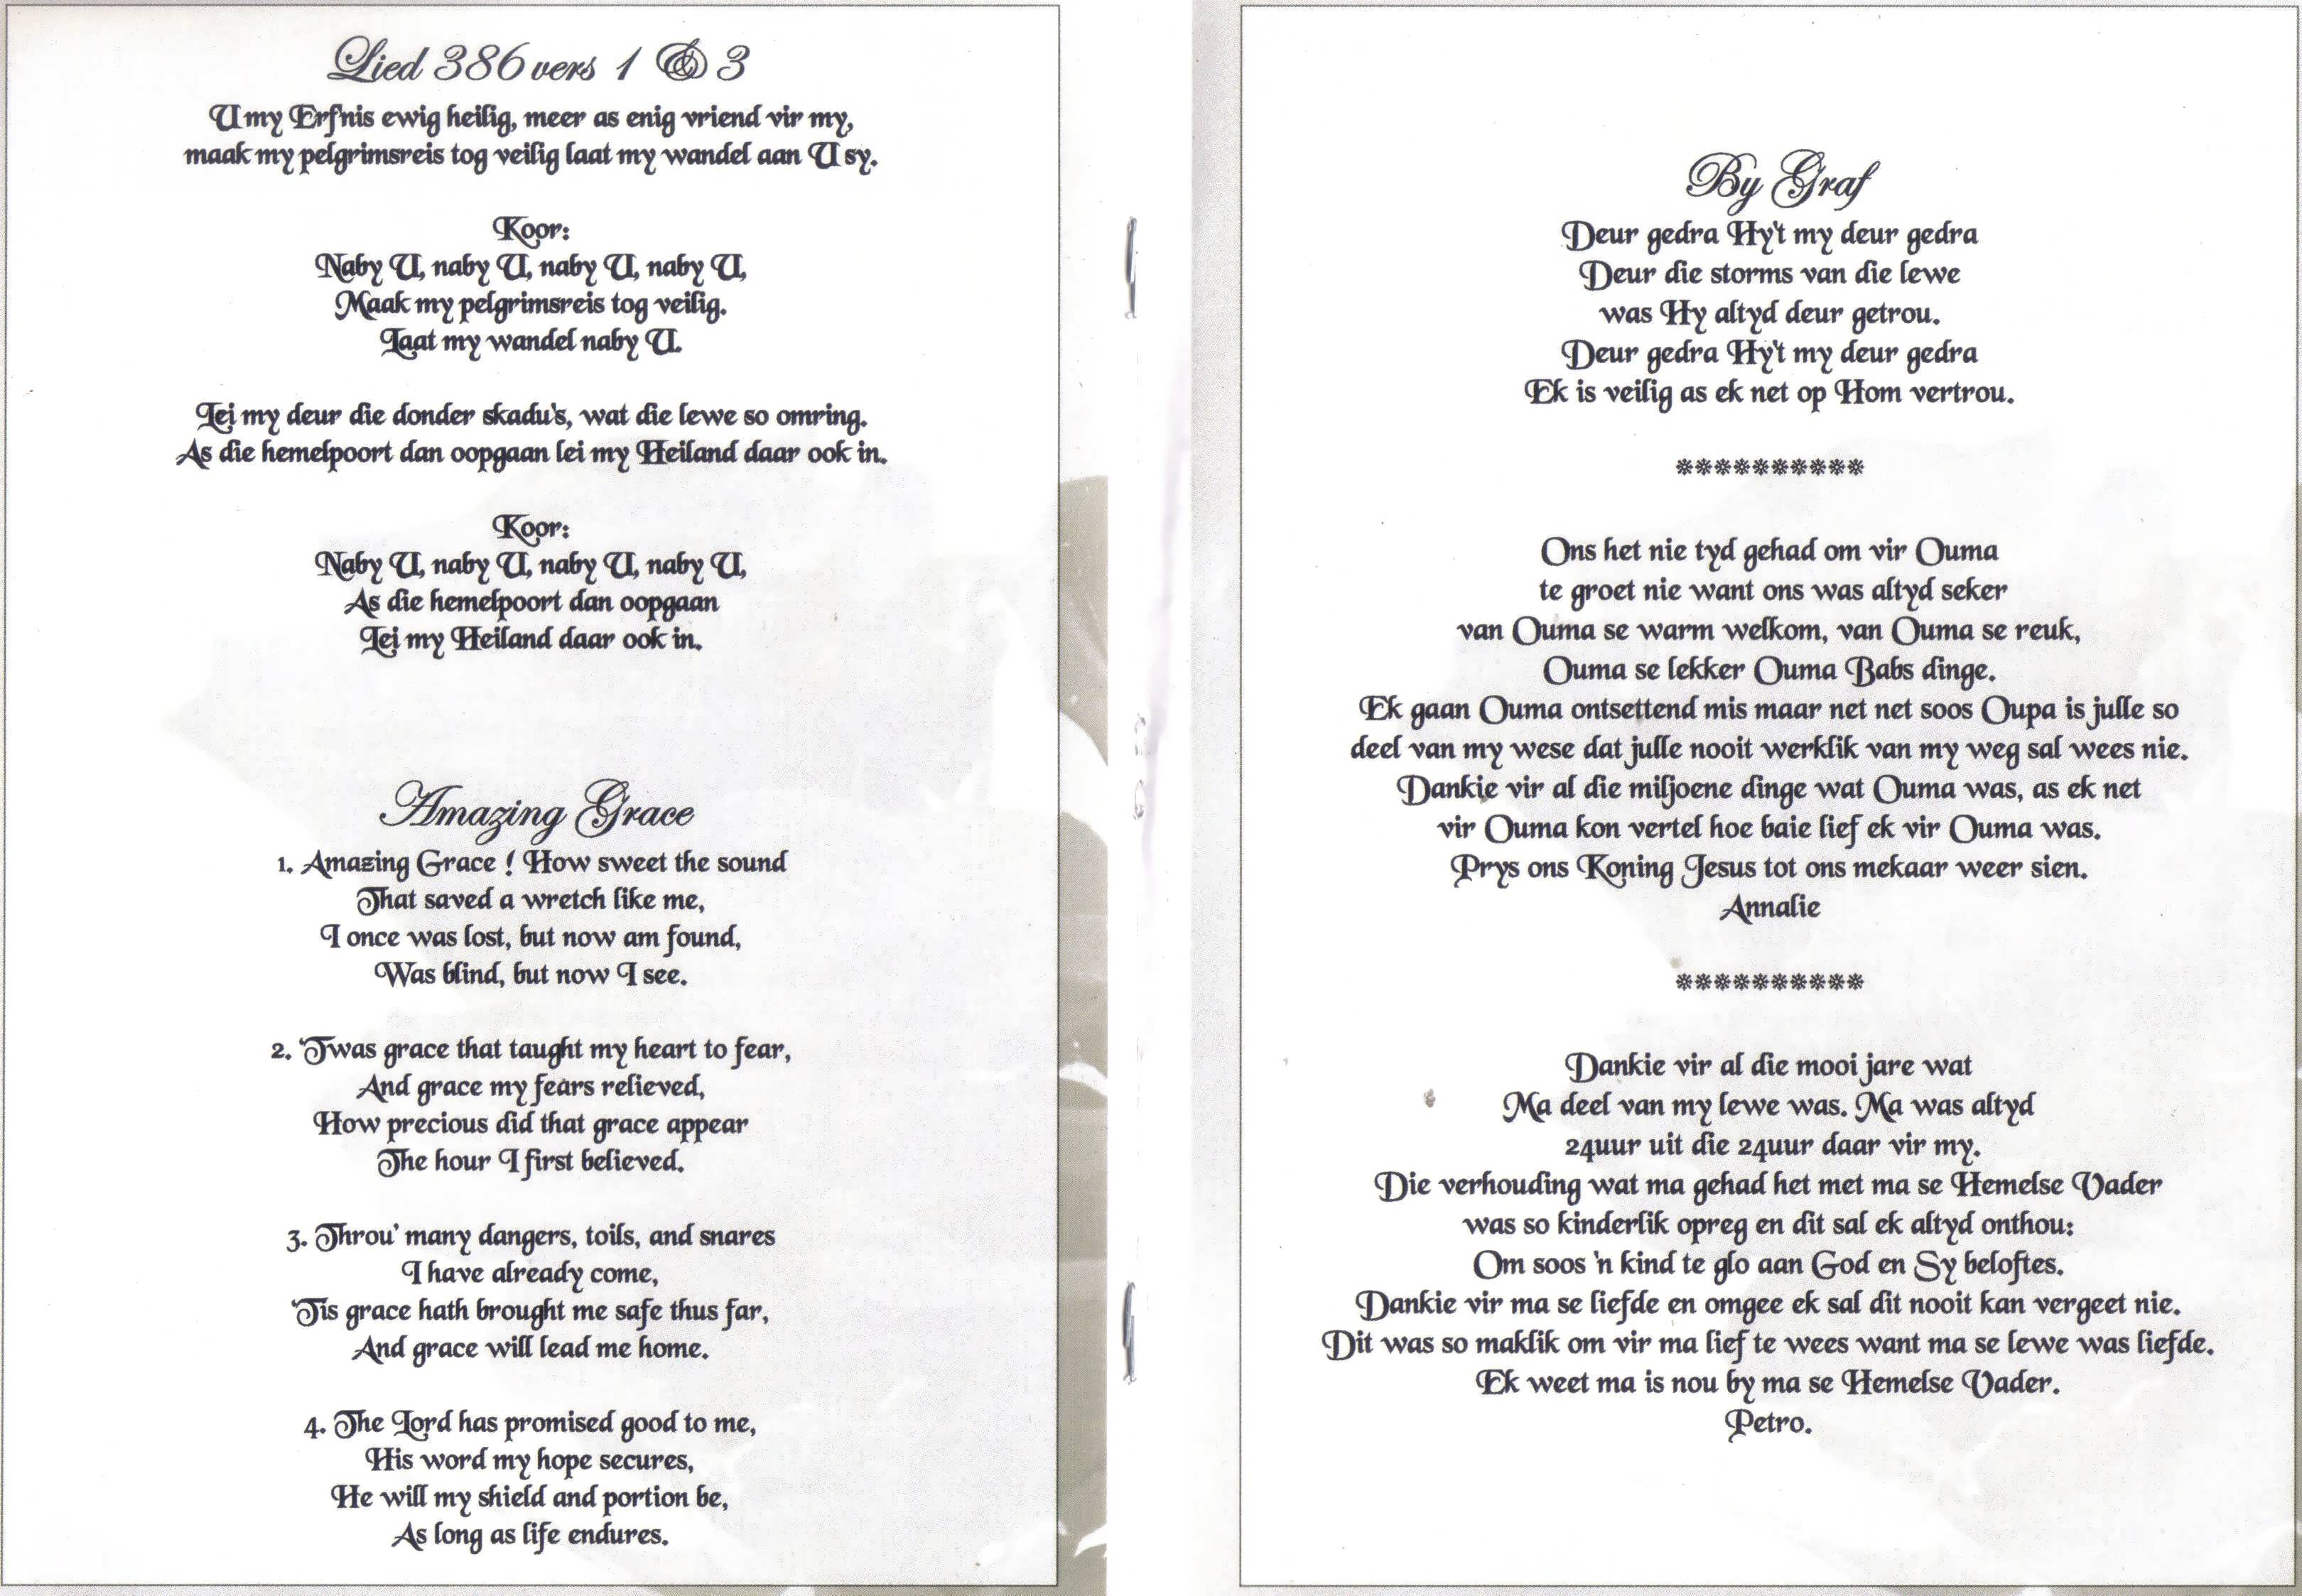 Lied 386 vers 1 & 3
U my Erfnis ewig heilig, meer as enig vriend vir my,
maak my pelgrimsreis tog veilig laat my wandel aan U sy.
Koor:
Naby U, naby U, naby U, naby U,
Maak my pelgrimsreis tog veilig.
Laat my wandel naby U.
Lei my deur die donder skadu's, wat die lewe so omring.
As die hemelpoort dan oopgaan lei my Heiland daar ook in.
Koor:
Naby U, naby U, naby U, naby U,
As die hemelpoort dan oopgaan
Lei my Heiland daar ook in.
Amazing Grace
1. Amazing Grace ! How sweet the sound
That saved a wretch like me,
I once was lost, but now am found,
Was blind, but now I see.
2. 'Twas grace that taught my heart to fear,
And grace my fears relieved,
How precious did that grace appear
The hour I first believed.
3. Throu' many dangers, toils, and snares
I have already come,
'Tis grace hath brought me safe thus far,
And grace will lead me home.
4. The Lord has promised good to me,
His word my hope secures,
He will my shield and portion be,
As long as life endures.
By Graf
Deur gedra Hy't my deur gedra
Deur die storms van die lewe
was Hy altyd deur getrou.
Deur gedra Hy't my deur gedra
Ek is veilig as ek net op Hom vertrou.
**********
Ons het nie tyd gehad om vir Ouma
te groet nie want ons was altyd seker
van Ouma se warm welkom, van Ouma se reuk,
Ouma se lekker Ouma Babs dinge.
Ek gaan Ouma ontsettend mis maar net net soos Oupa is julle so
deel van my wese dat julle nooit werklik van my weg sal wees nie.
Dankie vir al die miljoene dinge wat Ouma was, as ek net
vir Ouma kon vertel hoe baie lief ek vir Ouma was.
Prys ons Koning Jesus tot ons mekaar weer sien.
Annalie
**********
Dankie vir al die mooi jare wat
Ma deel van my lewe was. Ma was altyd
24uur uit die 24uur daar vir my.
Die verhouding wat ma gehad het met ma se Hemelse Vader
was so kinderlik opreg en dit sal ek altyd onthou:
Om soos 'n kind te glo aan God en Sy beloftes.
Dankie vir ma se liefde en omgee ek sal dit nooit kan vergeet nie.
Dit was so maklik om vir ma lief te wees want ma se lewe was liefde.
Ek weet ma is nou by ma se Hemelse Vader.
Petro.